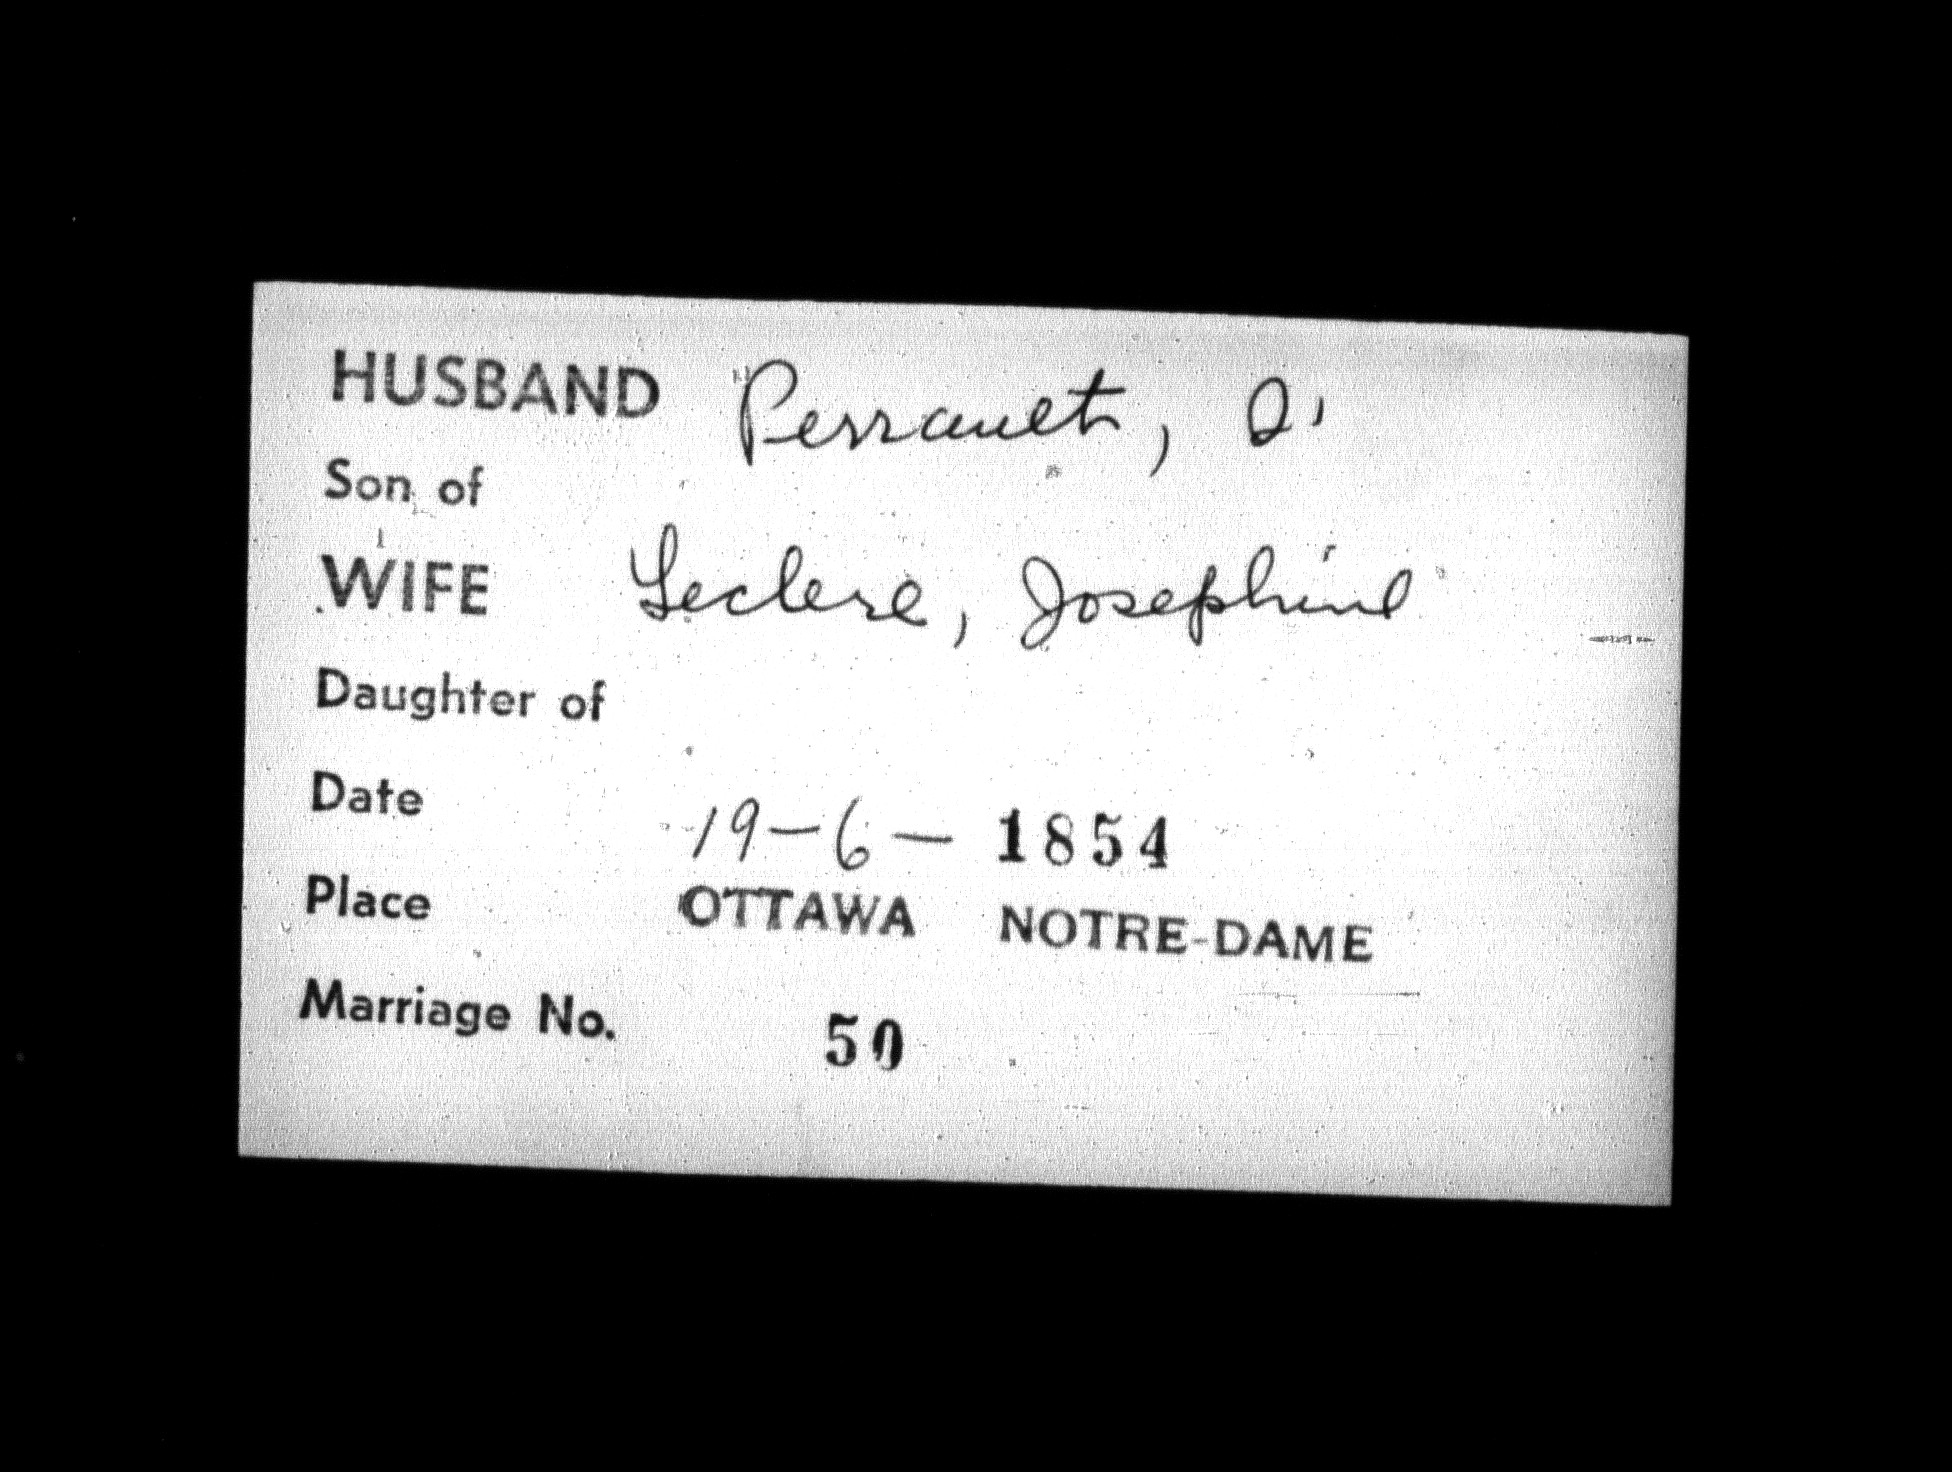 HUSBAND Perrault, O.
Son of
WIFE Leclere, Josephine
Daughter of
Date 19-6-1854
Place OTTAWA NOTRE-DAME
Marriage No. 50